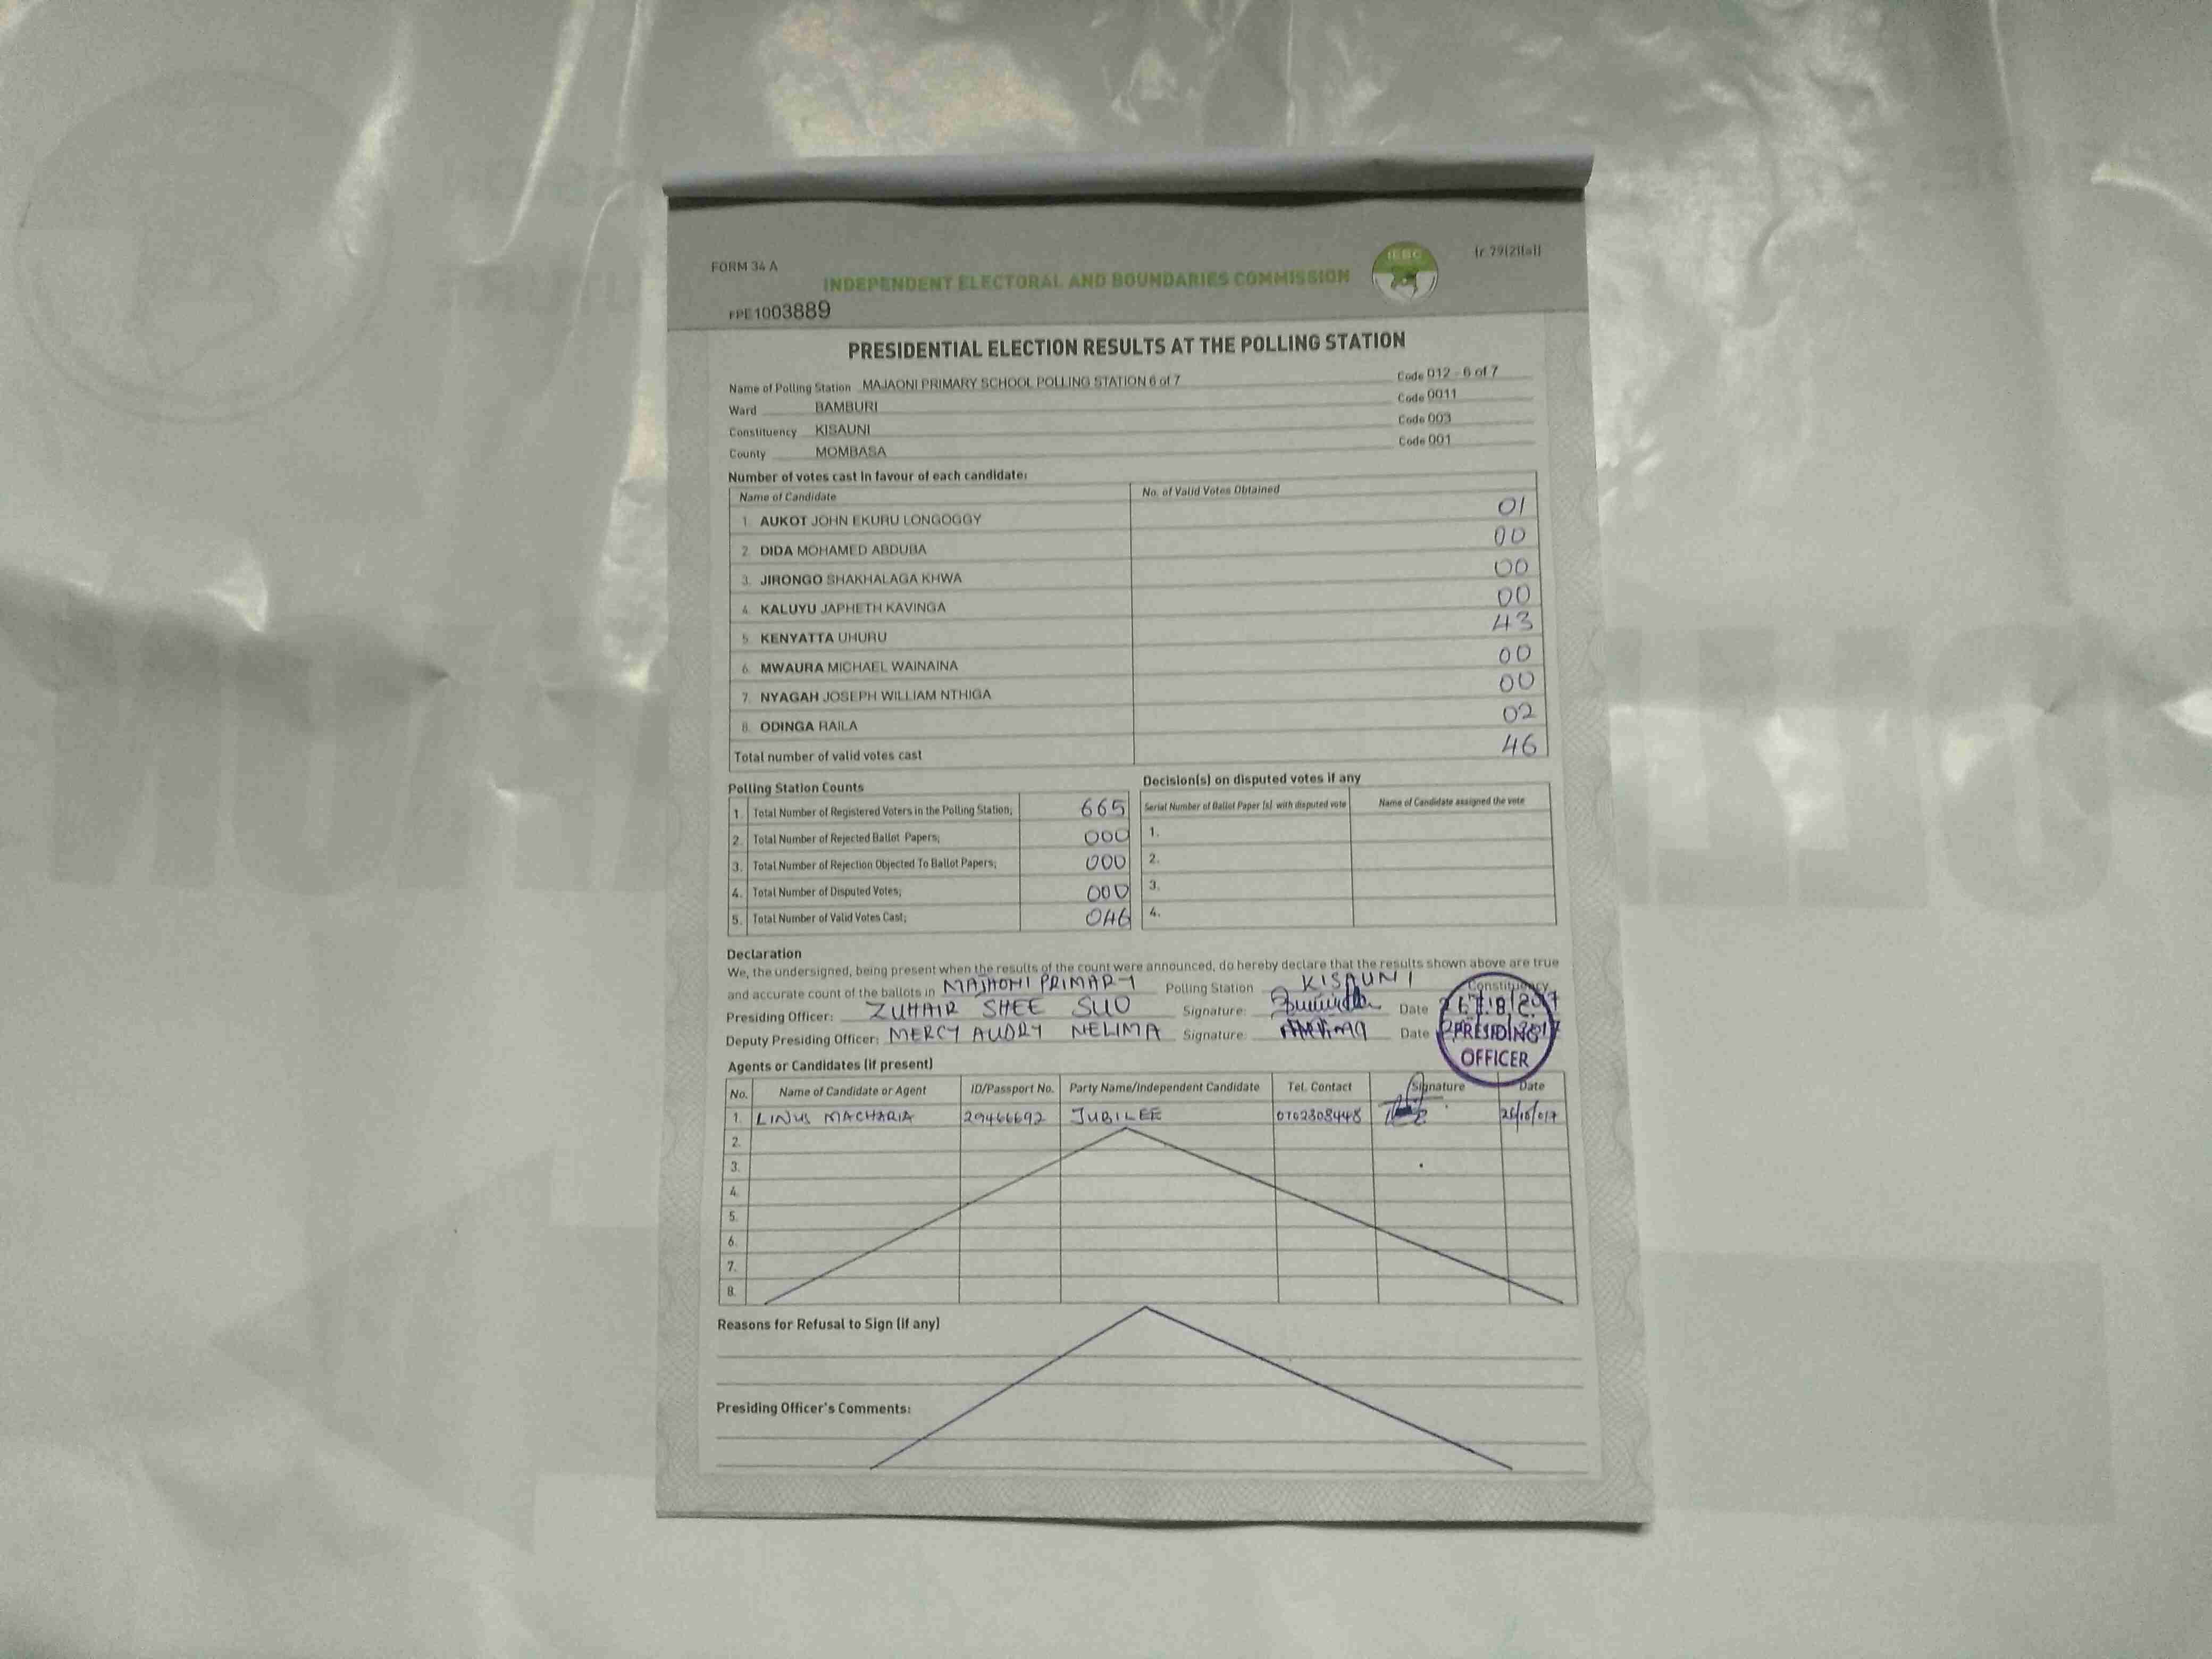 FORM 34 A
(r. 79(2)(a))
IEBC
INDEPENDENT ELECTORAL AND BOUNDARIES COMMISSION
PPE1003889
PRESIDENTIAL ELECTION RESULTS AT THE POLLING STATION
Name of Polling Station MAJAONI PRIMARY SCHOOL POLLING STATION 6 of 7 Code 012 - 6 of 7
Ward BAMBURI Code 0011
Constituency KISAUNI Code 003
County MOMBASA Code 001
Number of votes cast in favour of each candidate:
Name of Candidate No. of Valid Votes Obtained
1. AUKOT JOHN EKURU LONGOGGY 01
2. DIDA MOHAMED ABDUBA 00
3. JIRONGO SHAKHALAGA KHWA 00
4. KALUYU JAPHETH KAVINGA 00
5. KENYATTA UHURU 43
6. MWAURA MICHAEL WAINAINA 00
7. NYAGAH JOSEPH WILLIAM NTHIGA 00
8. ODINGA RAILA 02
Total number of valid votes cast 46
Polling Station Counts
1. Total Number of Registered Voters in the Polling Station; 665
2. Total Number of Rejected Ballot Papers; 000
3. Total Number of Rejection Objected To Ballot Papers; 000
4. Total Number of Disputed Votes; 000
5. Total Number of Valid Votes Cast; 046
Decision(s) on disputed votes if any
Serial Number of Ballot Paper (s) with disputed vote Name of Candidate assigned the vote
1.
2.
3.
4.
Declaration
We, the undersigned, being present when the results of the count were announced, do hereby declare that the results shown above are true
and accurate count of the ballots in MAJAONI PRIMARY Polling Station KISAUNI Constituency
Presiding Officer: ZUHAIR SHEE SUO Signature: Date
Deputy Presiding Officer: MERCY AUDRY NELIMA Signature: Date
PRESIDING
OFFICER
Agents or Candidates (if present)
No. Name of Candidate or Agent ID/Passport No. Party Name/Independent Candidate Tel. Contact Signature Date
1. LINUS MACHARIA 29466692 JUBILEE 0702308448 26/10/017
2.
3.
4.
5.
6.
7.
8.
Reasons for Refusal to Sign (if any)
Presiding Officer's Comments: